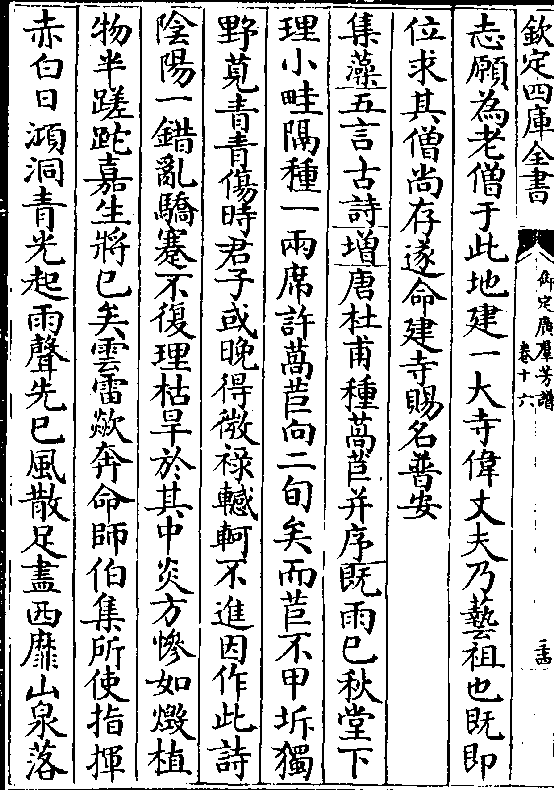 欽定四庫全書
御定廣羣芳譜
卷十六
志願為老僧于此地建一大寺偉丈夫乃藝祖也既即
位求其僧尚存遂命建寺賜名普安
集藻五言古詩增唐杜甫種萵苣并序既雨已秋堂下
理小畦隔種一兩席許萵苣向二旬矣而苣不甲坼獨
野莧青青傷時君子或晚得微禄轗軻不進因作此詩
陰陽一錯亂驕蹇不復理枯旱於其中炎方慘如燬植
物半蹉跎嘉生將已矣雲雷歘奔命師伯集所使指揮
赤白日澒洞青光起雨聲先已風散足盡西靡山泉落